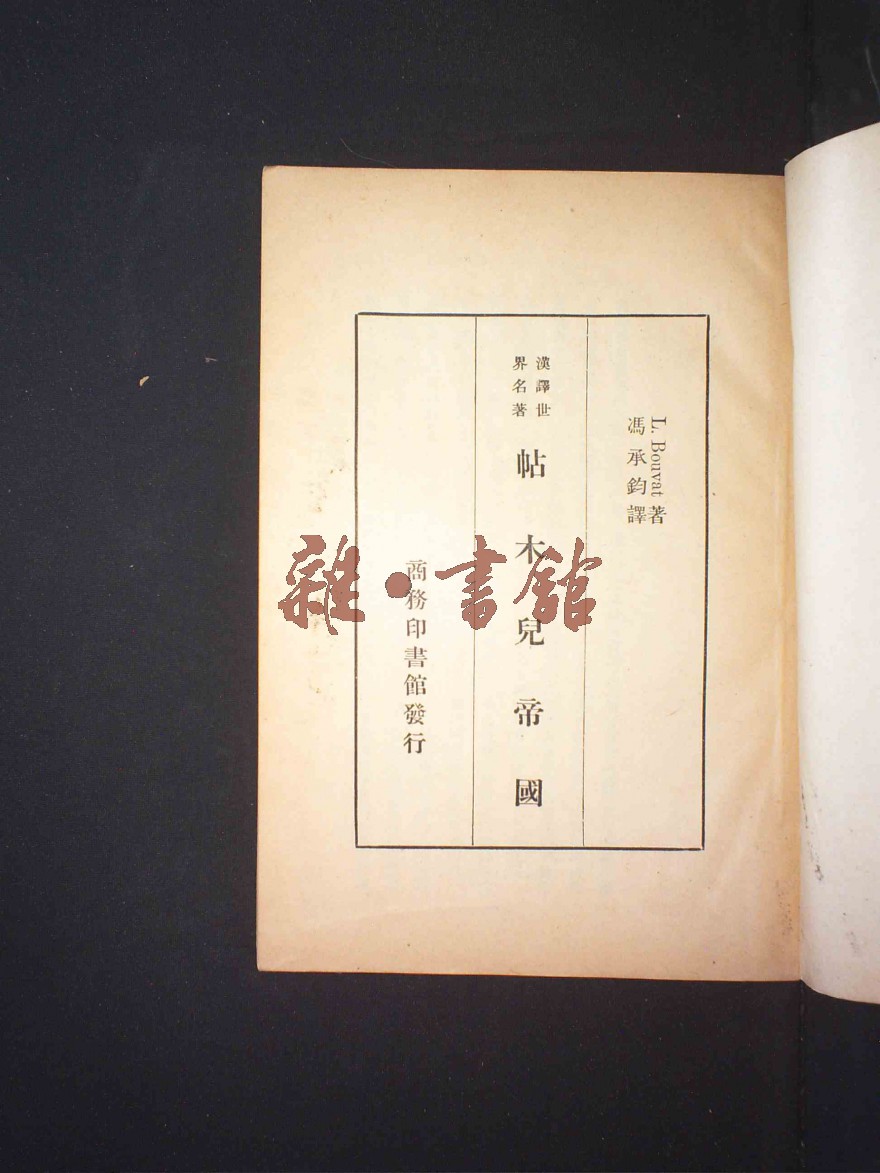 L. Bouvat著
馮承鈞譯
漢譯世
界名著
帖木兒帝國
商務印書館發行
雜·書館